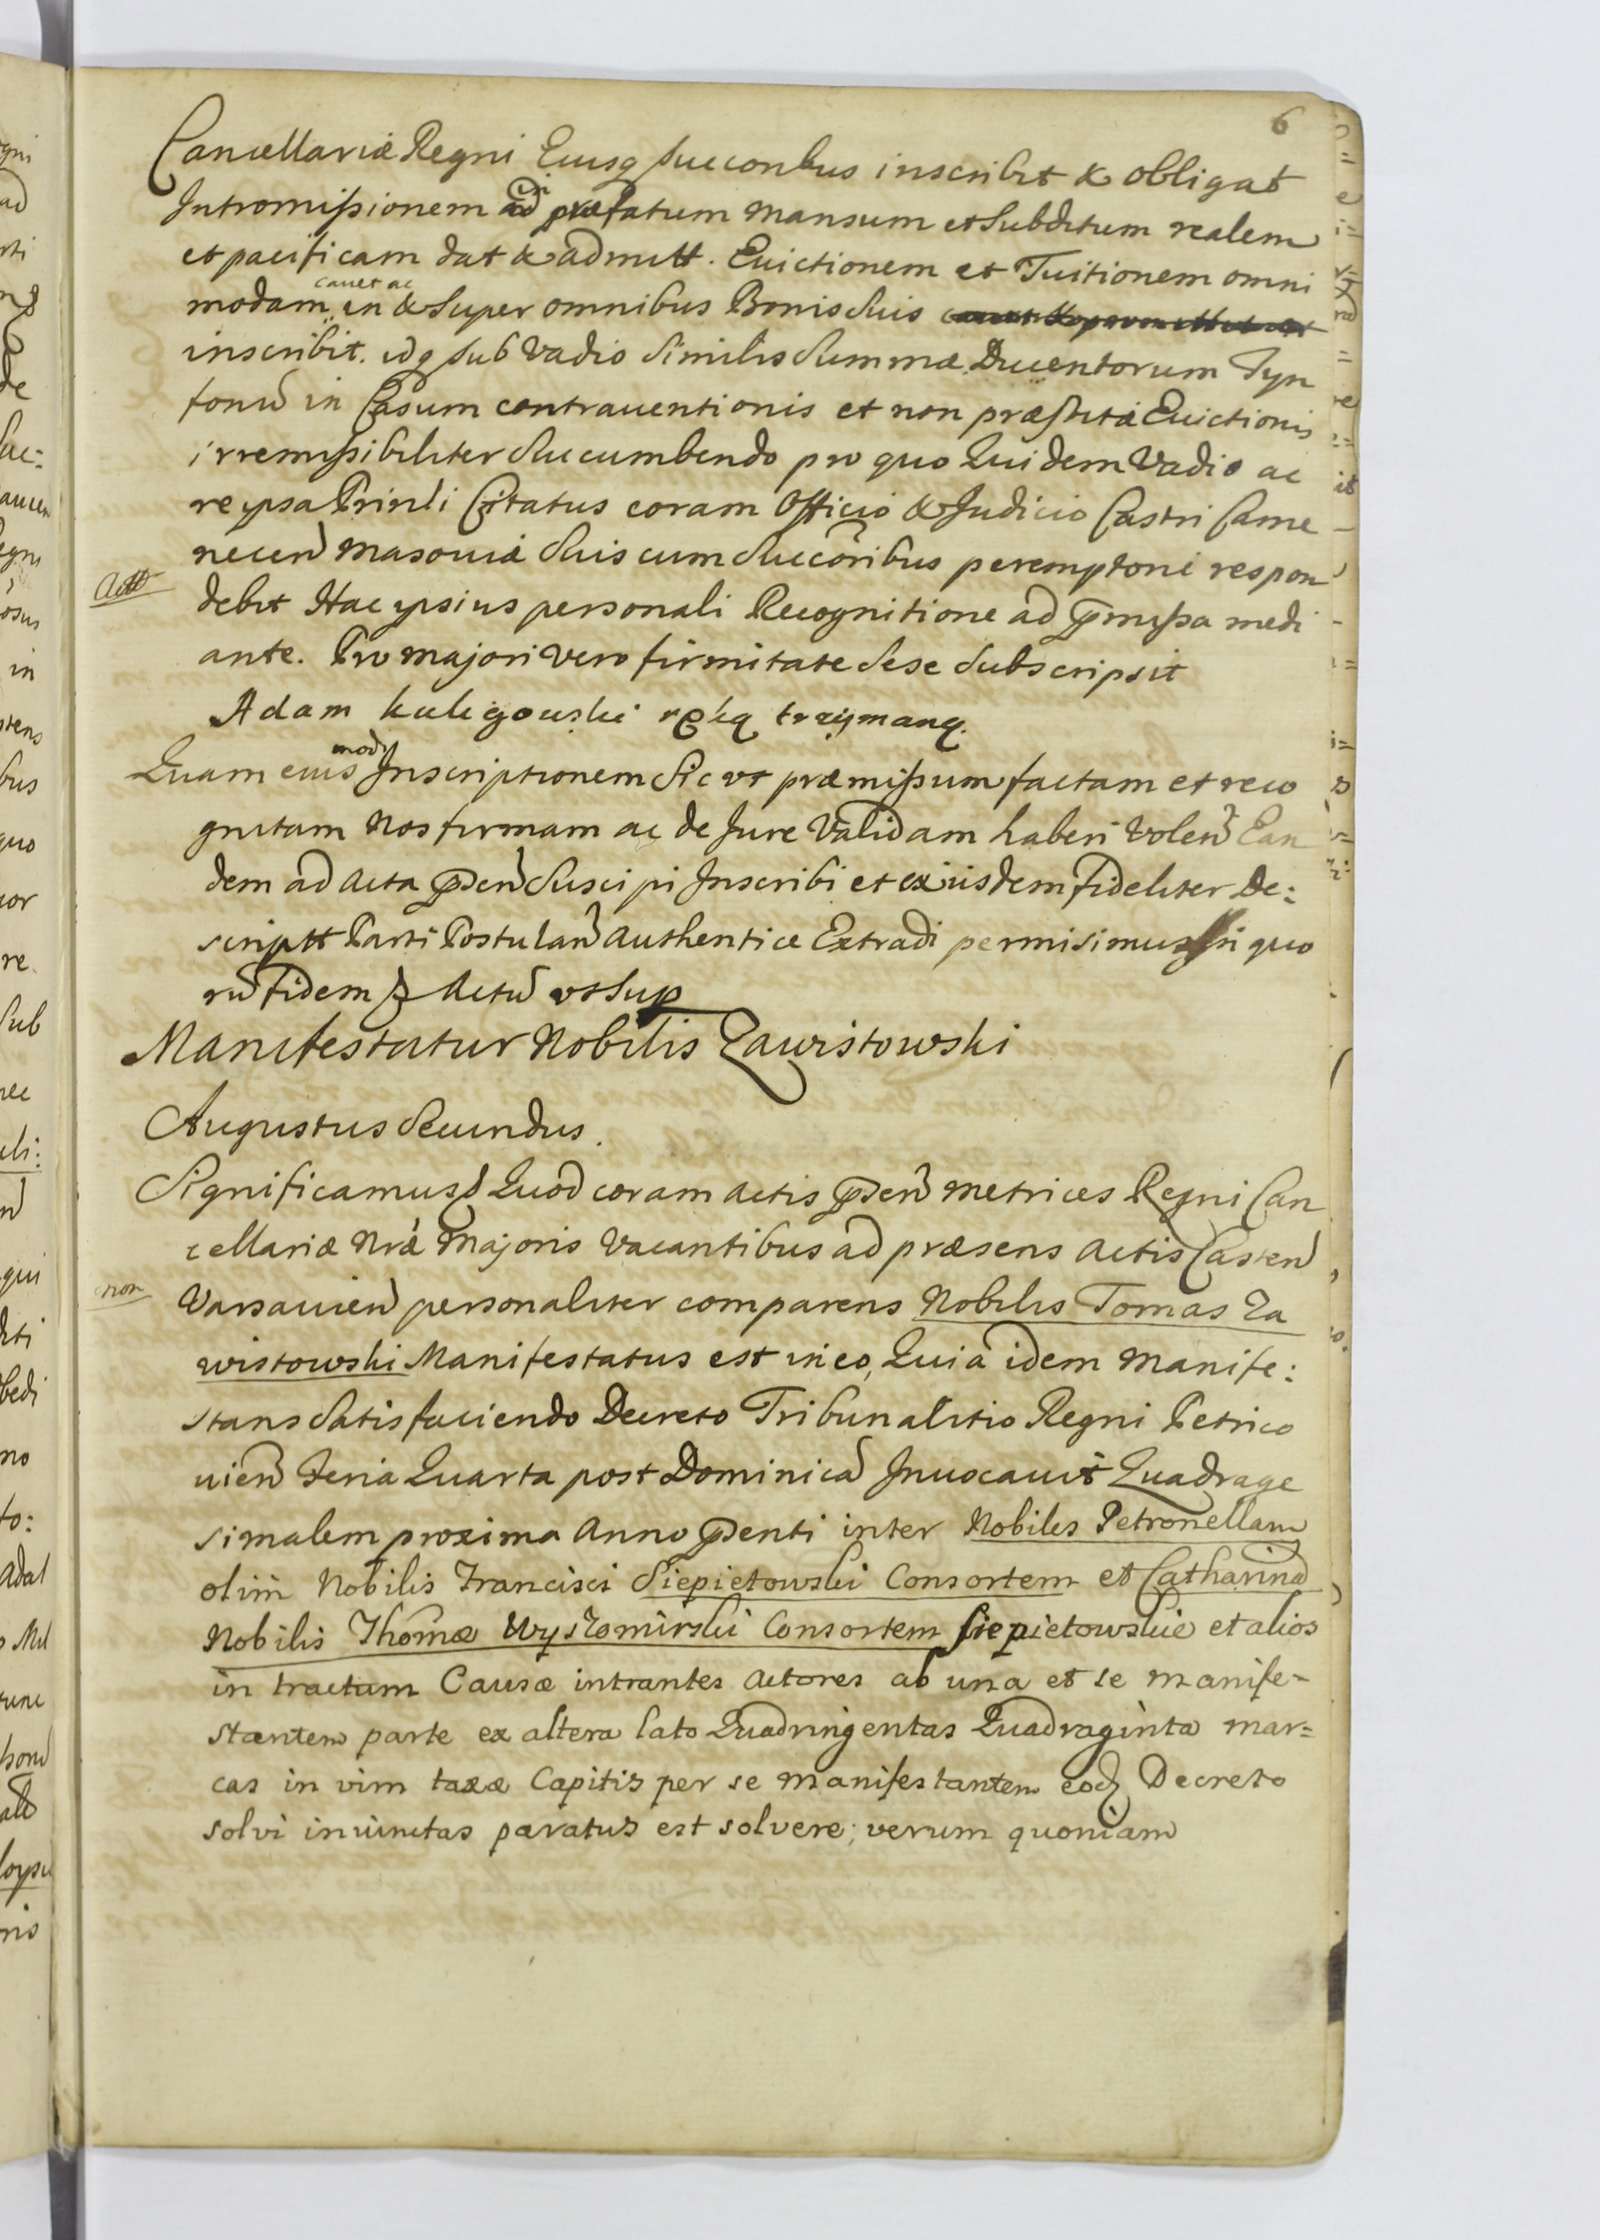 6
Cancellariæ Regni Eiusq succoribus inscribit & obligat
Intromissionem in præfatum mansum et Subditum realem
et pacificam dat & admitt. Euictionem et Tuitionem omni
modam cauet ac in & Super omnibus Bonis Suis
inscribit. idq sub Vadio Similis Summæ Ducentorum Tyn
fonũ in Casum contrauentionis et non præstitæ Euictionis
irremissibiliter Succumbendo pro quo Quidem Vadio ac
re ipsa Prinli Citatus coram Officio & Judicio Castri Came
necen Masouiæ Suis cum Succoribus peremptorie respon
Actt
debit Hac ipsius personali Recognitione ad præmissa medi
ante. Pro majori vero firmitate Sese Subscripsit
Adam Kuligowski ręką trzymaną.
Quam eius modi Inscriptionem Sic vt præmissum factam et reco
gnitam Nos firmam ac de Jure Validam haberi Volen Ean
dem ad Acta pñsen Suscipi Inscribi et ex iisdem fideliter De:
scriptt Parti Postulan Authentice Extradi permisimus In quo
rũ fidem Actũ vt Sup
Manifestatur Nobilis Zawistowski
Augustus Secundus.
Significamus Quod coram Actis pñsen Metrices Regni Can
cellariæ Nræ Majoris Vacantibus ad præsens Actis Casten
non
Varsauien personaliter comparens Nobilis Tomas Za
wistowski Manifestatus est in eo, Quia idem Manife:
stans Satisfaciendo Decreto Tribunalitio Regni Petrico
uien Feria Quarta post Dominicã Inuocauit Quadrage
simalem proxima Anno pñsenti inter Nobiles Petronellam
olim Nobilis Francisci Siepietowski Consortem et Catharinã
Nobilis Thomæ Wyszomirski Consortem Siepietowskie et alios
in tractum Causæ intrantes Actores ab una et se manife-
stantem parte ex altera lato Quadringentas Quadraginta mar=
cas in vim taxæ Capitis per se manifestantem eod Decreto
solvi iniunctas paratus est solvere; verum quoniam